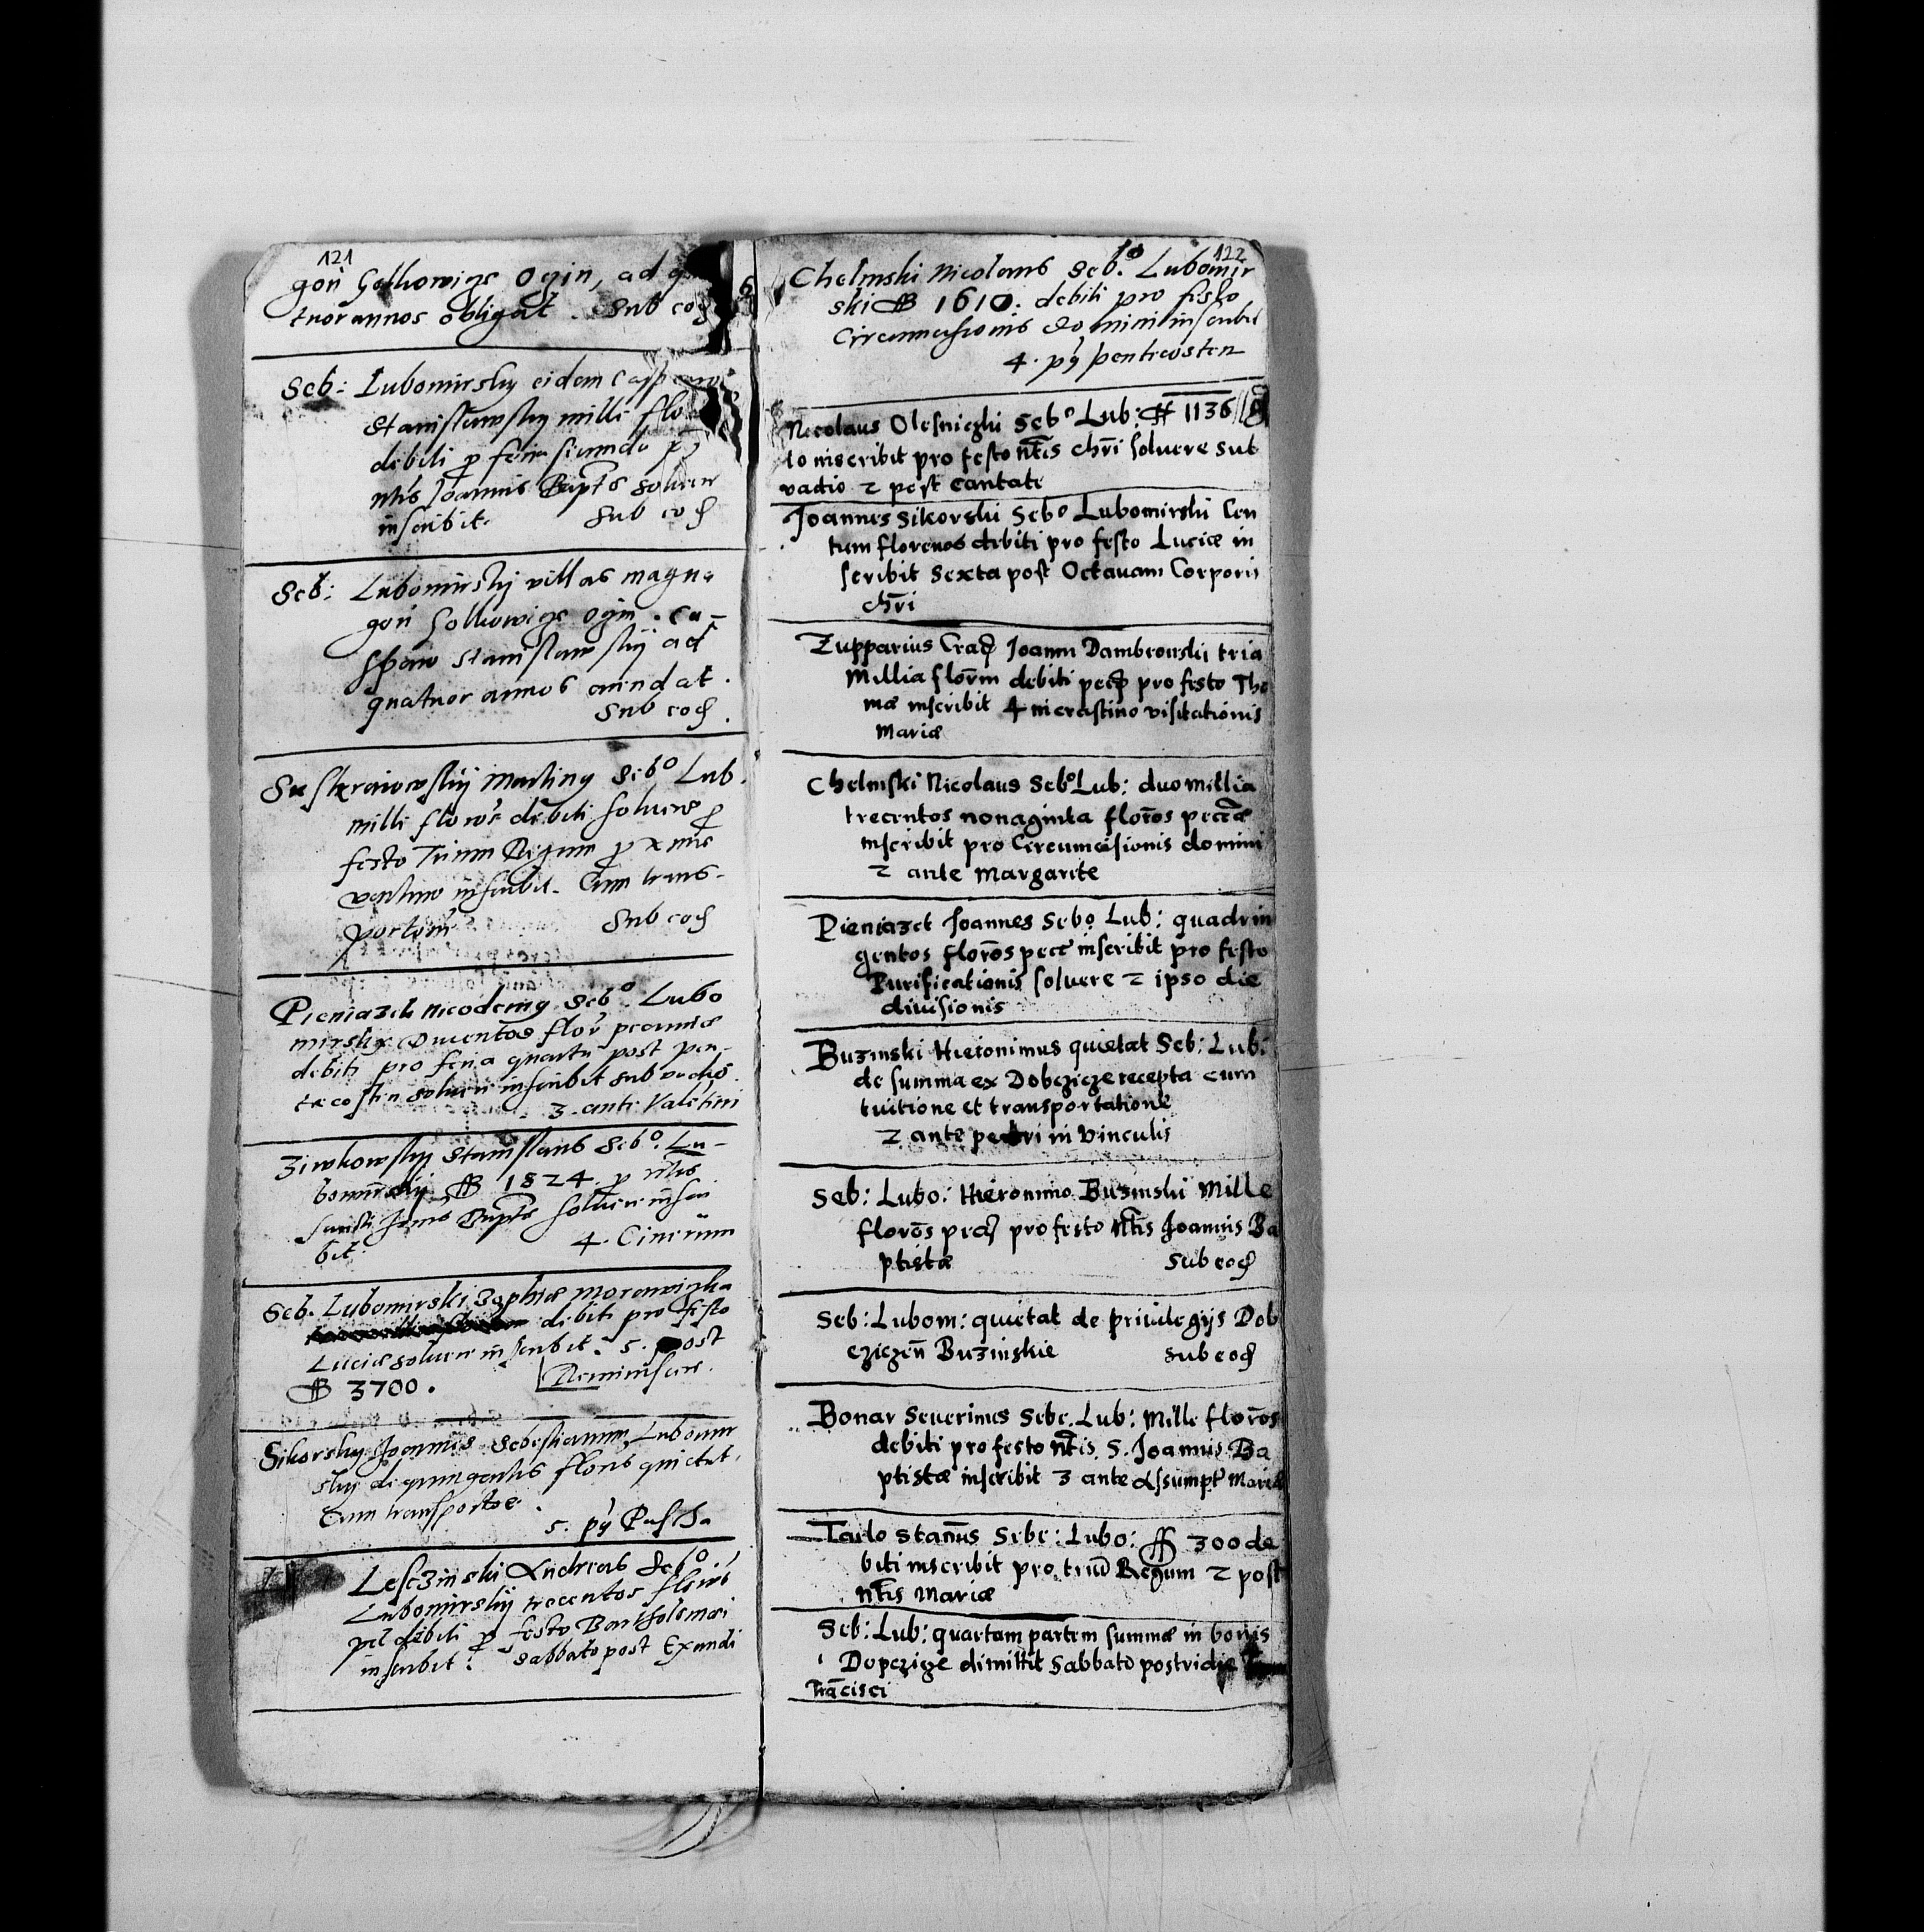 121
gon Golkowicze Ogin, ad
tuor annos obligat. Sub eod
Seb: Lubomirsky eidem Casparo
Stanislawsky mille flo
debiti p feria secunda
ntis Joannis Bapts solvere
inscribit. Sub eod
Seb: Lubomirskij villas magna
gon Golkowicze Ogin. Ca-
sparo Stanislawskij ad
quatuor annos arendat.
Sub eod.
Martinus Sebo Lub.
mille florr debiti soluere p
festo Trium Regum p
venturo inscribit. Cum trans-
portoe Sub eod
Pieniazek Nicodemus Sebo. Lubo
mirsky Ducentos flor pecuniae
debiti pro feria quarta post pen-
tecosten soluere inscribit sub vadio
3. ante Valetini
Ziwkowsky Stanislaus Sebo. Lu-
bomirskij ff 1824. p ntis
Sancti Joannis Bapts soluere inscri
bit. 4. Cinerum
Seb. Lubomirski Zophiae Morawiczka
debiti pro festo
Luciae soluere inscribit. 5. post
ff 3700. Reminiscere.
Sikorsky Joannes Sebestianum Lubomir
sky de quingentis floris quietat.
Cum transportoe.
5. pq Pascha
Lesczinski Andreas Sebo
Lubomirskij trecentos floros
pec debiti p festo Bartholomaei
inscribit. Sabbato post Exaudi
122
Chelmski Nicolaus Sebo. Lubomir
ski ff 1610. debiti pro festo
Circumcisionis Domini inscribit
4. pq pentecosten
Nicolaus Olesniczki Sebo Lub: ff 1136
to inscribit pro festo ntis Chri soluere sub
vadio 2 post Cantate
Joannes Sikorski Sebo Lubomirski Cen
tum florenos debiti pro festo Luciae in
scribit Sexta post Octauam Corporis
Chri
Zupparius Crac Joanni Dambrowski tria
Millia florm debiti pec pro festo Tho
mae inscribit 4 in crastino visitationis
Mariae
Chelmski Nicolaus Sebo Lub: duo millia
trecentos nonaginta floros peccae
inscribit pro Circumcisionis domini
2 ante Margarite
Pieniazek Joannes Sebo Lub: quadrin
gentos floros pecc inscribit pro festo
Purificationis soluere 2 ipso die
diuisionis
Buzinski Hieronimus quietat Seb: Lub:
de summa ex Dobczicze recepta cum
tuitione et transportatione
2 ante petri in vinculis
Seb: Lubo: Hieronimo Buzinski Mille
floros pec pro festo ntis Joannis Ba
ptistae Sub eod
Seb: Lubom: quietat de priuilegijs Dob
cziczen Buzinskie sub eod
Bonar Seuerinus Sebe. Lub: Mille floros
debiti pro festo ntis S. Joannis Ba
ptistae inscribit 3 ante Assumpt Mariae
Tarlo Stanus Sebe: Lubo: ff 300 de
biti inscribit pro triu Regum 2 post
ntis Mariae
Seb: Lub: quartam partem summae in bonis
Dopczicze dimittit Sabbato postridie
Francisci